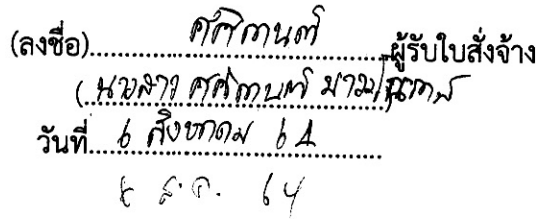 (ลงชื่อ) ศศิกานต์ ผู้รับใบสั่งจ้าง
(นางสาว ศศิกานต์
วันที่ 6 สิงหาคม 64
ส.ค. 64